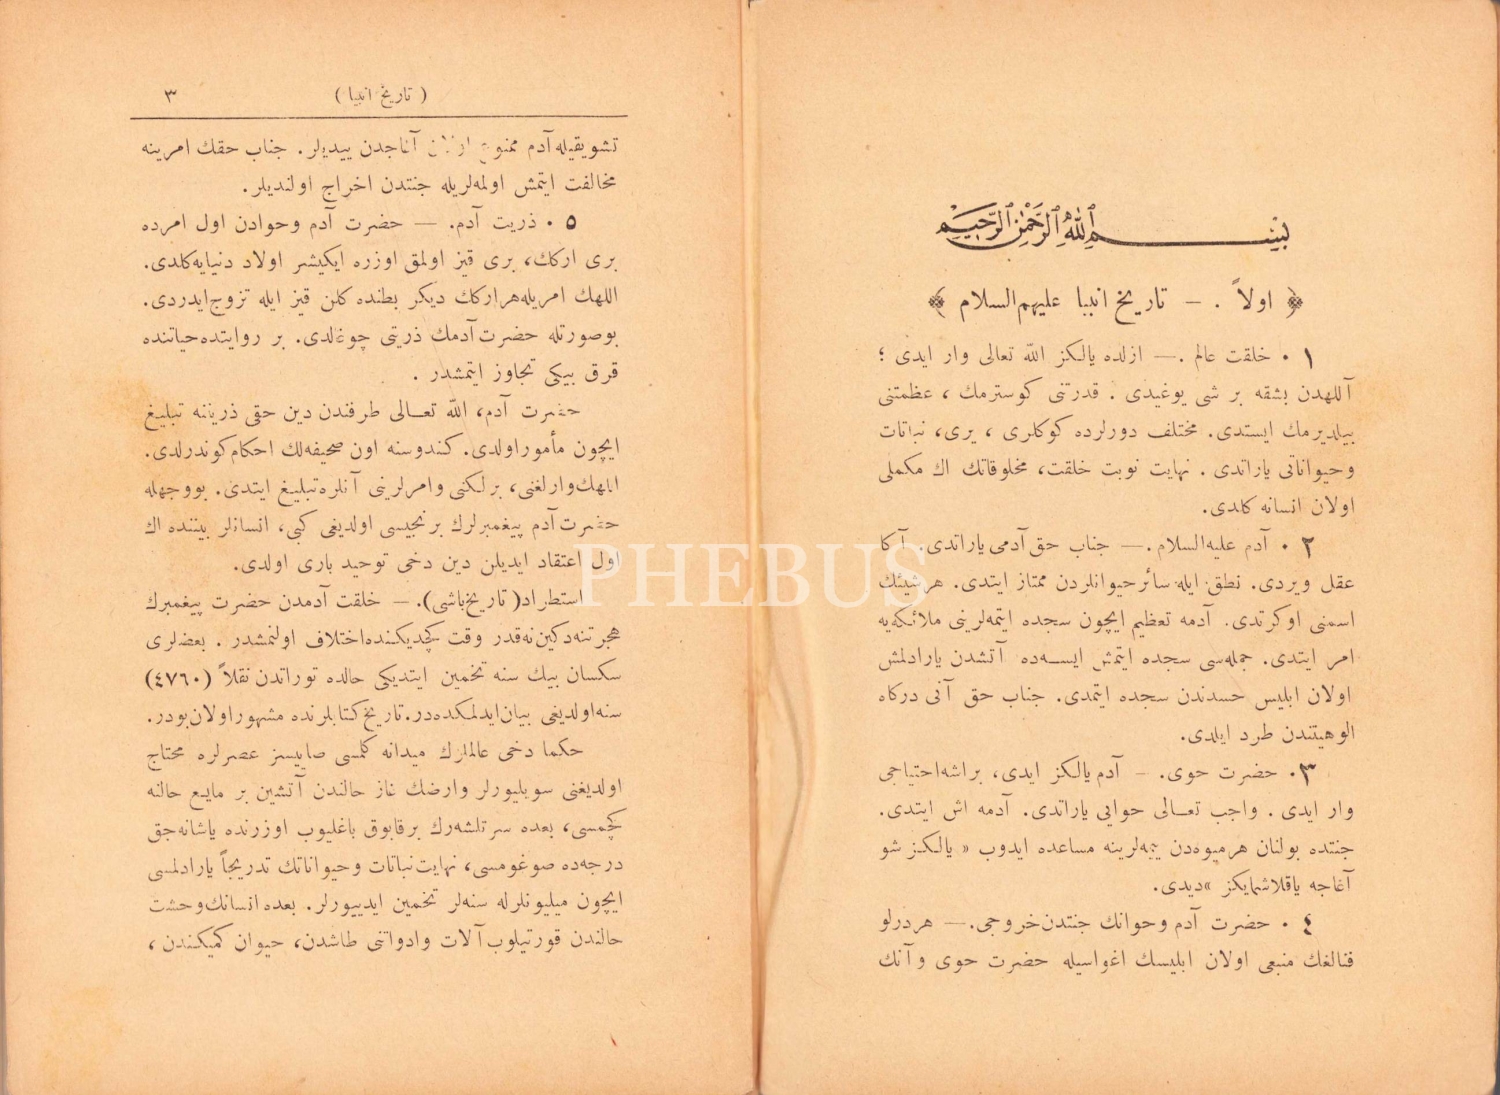 بسم الله الرحمن الرحيم
﴿ اولاً . — تاريخ انبيا عليهم السلام ﴾
١ • خلقت عالم .— ازلده يالكز الله تعالى وار ايدى ؛
آللهدن بشقه بر شى يوغيدى . قدرتنى كوسترمك ، عظمتنى
بيلديرمك ايستدى. مختلف دورلرده كوكلرى ، يرى، نباتات
وحيواناتى ياراتدى . نهايت نوبت خلقت، مخلوقاتك اك مكملى
اولان انسانه كلدى.
٢ • آدم عليه السلام .— جناب حق آدمى ياراتدى. آكا
عقل ويردى. نطق ايله سائر حيوانلردن ممتاز ايتدى. هر شيئك
اسمنى اوكرتدى. آدمه تعظيم ايچون سجده ايتمه لرينى ملائكه يه
امر ايتدى. جمله سى سجده ايتمش ايسه ده آتشدن يارادلمش
اولان ابليس حسدندن سجده ايتمدى. جناب حق آنى دركاه
الوهيتندن طرد ايلدى.
٣ • حضرت حوى. — آدم يالكز ايدى، بر اشه احتياجى
وار ايدى . واجب تعالى حوايى ياراتدى. آدمه اش ايتدى.
جنتده بولنان هر ميوه دن ييمه لرينه مساعده ايدوب « يالكز شو
آغاجه ياقلاشمايكز » ديدى.
٤ • حضرت آدم وحوانك جنتدن خروجى.— هر درلو
فنالغك منبعى اولان ابليسك اغواسيله حضرت حوى و آنك
( تاريخ انبيا ) ٣
تشويقيله آدم ممنوع اولان آغاجدن ييديلر. جناب حقك امرينه
مخالفت ايتمش اولمه لريله جنتدن اخراج اولنديلر.
٥ • ذريت آدم. — حضرت آدم وحوادن اول امرده
برى اركك، برى قيز اولمق اوزره ايكيشر اولاد دنيايه كلدى.
اللهك امريله هر اركك ديكر بطنده كلن قيز ايله تزوج ايدردى.
بو صورتله حضرت آدمك ذريتى چوغلدى. بر روايتده حياتنده
قرق بيكى تجاوز ايتمشدر .
حضرت آدم، الله تعالى طرفندن دين حقى ذريتنه تبليغ
ايچون مأمور اولدى. كندوسنه اون صحيفه لك احكام كوندرلدى.
اللهك وارلغنى، برلكنى وامرلرينى آنلره تبليغ ايتدى. بو وجهله
حضرت آدم پيغمبرلرك برنجيسى اولديغى كبى، انسانلر بيننده اك
اول اعتقاد ايديلن دين دخى توحيد بارى اولدى.
استطراد( تاريخ باشى). — خلقت آدمدن حضرت پيغمبرك
هجرتنه دكين نه قدر وقت كچديكنده اختلاف اولنمشدر . بعضلرى
سكسان بيك سنه تخمين ايتديكى حالده توراتدن نقلاً (٤٧٦٠)
سنه اولديغى بيان ايدلمكده در. تاريخ كتابلرنده مشهور اولان بودر.
حكما دخى عالملرك ميدانه كلمسى صاييسز عصرلره محتاج
اولديغنى سويليورلر وارضك غاز حالندن آتشين بر مايع حالنه
كچمسى، بعده سرتلشه رك بر قابوق باغليوب اوزرنده ياشانه جق
درجه ده صوغومسى، نهايت نباتات وحيواناتك تدريجاً يارادلمسى
ايچون ميليونلرله سنه لر تخمين ايدييورلر. بعده انسانك وحشت
حالندن قورتيلوب آلات وادواتنى طاشدن، حيوان كميكندن ،
PHEBUS